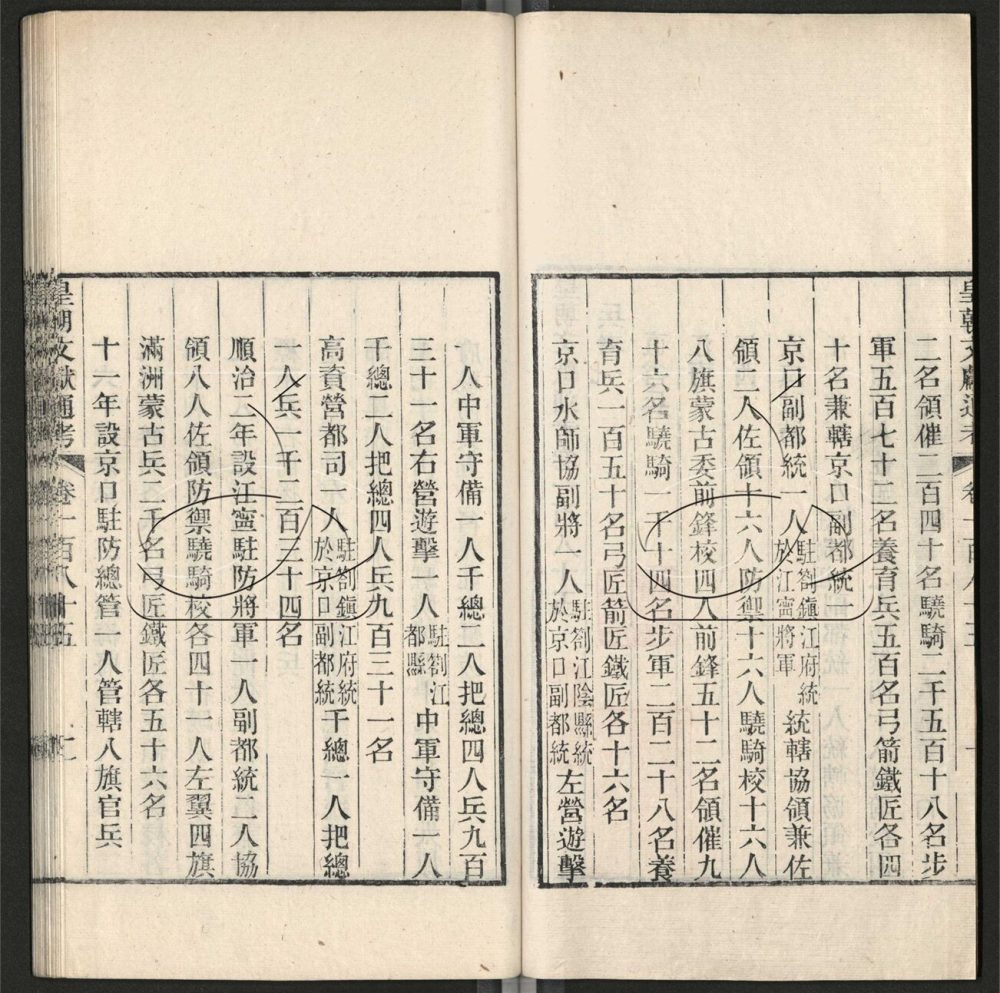 皇朝文獻通考 卷一百八十五
二名領催二百四十名驍騎二千五百十八名步
軍五百七十二名養育兵五百名弓箭鐵匠各四
十名兼轄京口副都統一
京口副都統一人駐劄鎮江府統於江寧將軍統轄協領兼佐
領二人佐領十六人防禦十六人驍騎校十六人
八旗蒙古委前鋒校四人前鋒五十二名領催九
十六名驍騎一千十四名步軍二百二十八名養
育兵一百五十名弓匠箭匠鐵匠各十六名
京口水師協副將一人駐劄江陰縣統於京口副都統左營遊擊
人中軍守備一人千總二人把總四人兵九百
三十一名右營遊擊一人駐劄江都縣中軍守備一人
千總二人把總四人兵九百三十一名
高資營都司一人駐劄鎮江府統於京口副都統千總一人把總
一人兵一千二百三十四名
順治二年設江寧駐防將軍一人副都統二人協
領八人佐領防禦驍騎校各四十一人左翼四旗
滿洲蒙古兵二千名弓匠鐵匠各五十六名
十一年設京口駐防總管一人管轄八旗官兵
皇朝文獻通考 卷一百八十五 七